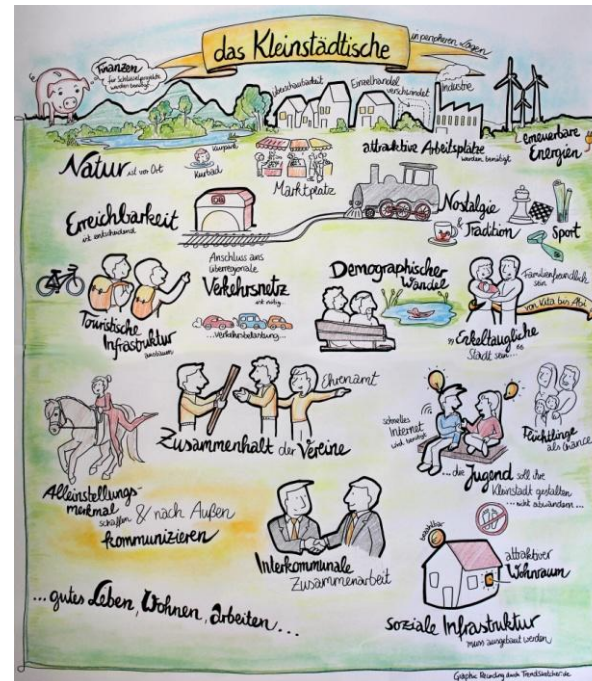 das Kleinstädtische
in peripheren Lagen
Finanzen
für Schlüsselprojekte
werden benötigt
Überschaubarkeit
Einzelhandel
verschwindet
Industrie
Natur ist vor Ort
Kurpark
Kurbad
Marktplatz
attraktive Arbeitsplätze
werden benötigt
erneuerbare
Energien
Erreichbarkeit
ist entscheidend
Nostalgie
& Tradition
Sport
Anschluss ans
überregionale
Verkehrsnetz
ist nötig
...Verkehrsbelastung...
Touristische
Infrastruktur
ausbauen
Demographischer
Wandel
Familienfreundlich
sein
von Kita bis Abi
"Enkeltaugliche"
Stadt sein...
Ehrenamt
Zusammenhalt der Vereine
schnelles
Internet
wird benötigt
Flüchtlinge
als Chance
...die Jugend soll ihre
Kleinstadt gestalten
...nicht abwandern...
Alleinstellungs-
merkmal
schaffen & nach Außen
kommunizieren
Interkommunale
Zusammenarbeit
bezahlbar
attraktiver
Wohnraum
soziale Infrastruktur
muss ausgebaut werden
...gutes Leben, Wohnen, Arbeiten...
Graphic Recording durch Trendsketcher.de